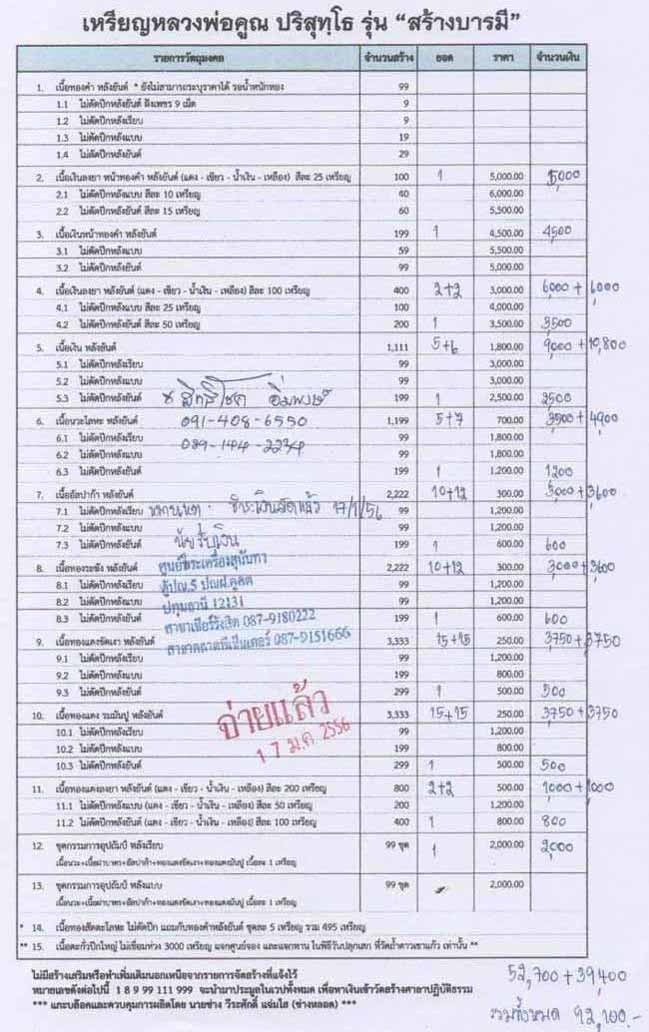 เหรียญหลวงพ่อคูณ ปริสุทฺโธ รุ่น “สร้างบารมี”
รายการวัตถุมงคล จำนวนสร้าง ยอด ราคา จำนวนเงิน
1. เนื้อทองคำ หลังยันต์ * ยังไม่สามารถระบุราคาได้ รอน้ำหนักทอง 99
1.1 ไม่ตัดปีกหลังยันต์ ฝังเพชร 9 เม็ด 9
1.2 ไม่ตัดปีกหลังเรียบ 9
1.3 ไม่ตัดปีกหลังแบบ 19
1.4 ไม่ตัดปีกหลังยันต์ 29
2. เนื้อเงินลงยา หน้าทองคำ หลังยันต์ (แดง - เขียว - น้ำเงิน - เหลือง) สีละ 25 เหรียญ 100 1 5,000.00 5,000
2.1 ไม่ตัดปีกหลังแบบ สีละ 10 เหรียญ 40 6,000.00
2.2 ไม่ตัดปีกหลังยันต์ สีละ 15 เหรียญ 60 5,500.00
3. เนื้อเงินหน้าทองคำ หลังยันต์ 199 1 4,500.00 4,500
3.1 ไม่ตัดปีกหลังแบบ 59 5,500.00
3.2 ไม่ตัดปีกหลังยันต์ 99 5,000.00
4. เนื้อเงินลงยา หลังยันต์ (แดง - เขียว - น้ำเงิน - เหลือง) สีละ 100 เหรียญ 400 2+2 3,000.00 6,000 + 6,000
4.1 ไม่ตัดปีกหลังแบบ สีละ 25 เหรียญ 100 4,000.00
4.2 ไม่ตัดปีกหลังยันต์ สีละ 50 เหรียญ 200 1 3,500.00 3,500
5. เนื้อเงิน หลังยันต์ 1,111 5+6 1,800.00 9,000 + 10,800
5.1 ไม่ตัดปีกหลังเรียบ 99 3,000.00
5.2 ไม่ตัดปีกหลังแบบ 99 3,000.00
5.3 ไม่ตัดปีกหลังยันต์ 199 1 2,500.00 2,500
6. เนื้อนวะโลหะ หลังยันต์ 091-408-6550 1,199 5+7 700.00 3,500 + 4,900
6.1 ไม่ตัดปีกหลังเรียบ 089-144-2234 99 1,800.00
6.2 ไม่ตัดปีกหลังแบบ 99 1,800.00
6.3 ไม่ตัดปีกหลังยันต์ 199 1 1,200.00 1,200
7. เนื้ออัลปาก้า หลังยันต์ 2,222 10+12 300.00 3,000 + 3,600
7.1 ไม่ตัดปีกหลังเรียบ ชำระเงินสดแล้ว 17/1/56 99 1,200.00
7.2 ไม่ตัดปีกหลังแบบ 99 1,200.00
7.3 ไม่ตัดปีกหลังยันต์ ผู้รับเงิน 199 1 600.00 600
8. เนื้อทองระฆัง หลังยันต์ ศูนย์พระเครื่องสุนันทา 2,222 10+12 300.00 3,000 + 3,600
8.1 ไม่ตัดปีกหลังเรียบ ตู้ปณ.5 ปณฝ.คูคต 99 1,200.00
8.2 ไม่ตัดปีกหลังแบบ ปทุมธานี 12131 99 1,200.00
8.3 ไม่ตัดปีกหลังยันต์ สาขาเมเจอร์รังสิต 087-9180222 199 1 600.00 600
9. เนื้อทองแดงขัดเงา หลังยันต์ 087-9151666 3,333 15+15 250.00 3,750 + 3,750
9.1 ไม่ตัดปีกหลังเรียบ 99 1,200.00
9.2 ไม่ตัดปีกหลังแบบ 199 800.00
9.3 ไม่ตัดปีกหลังยันต์ 299 1 500.00 500
จ่ายแล้ว
17 ม.ค. 2556
10. เนื้อทองแดง รมมันปู หลังยันต์ 3,333 15+15 250.00 3,750 + 3,750
10.1 ไม่ตัดปีกหลังเรียบ 99 1,200.00
10.2 ไม่ตัดปีกหลังแบบ 199 800.00
10.3 ไม่ตัดปีกหลังยันต์ 299 1 500.00 500
11. เนื้อทองแดงลงยา หลังยันต์ (แดง - เขียว - น้ำเงิน - เหลือง) สีละ 200 เหรียญ 800 2+2 500.00 1,000 + 1,000
11.1 ไม่ตัดปีกหลังแบบ (แดง - เขียว - น้ำเงิน - เหลือง) สีละ 50 เหรียญ 200 1,200.00
11.2 ไม่ตัดปีกหลังยันต์ (แดง - เขียว - น้ำเงิน - เหลือง) สีละ 100 เหรียญ 400 1 800.00 800
12. ชุดกรรมการอุปถัมป์ หลังเรียบ 99 ชุด 1 2,000.00 2,000
เนื้อนวะ+เนื้อฝาบาตร+อัลปาก้า+ทองแดงขัดเงา+ทองแดงมันปู เนื้อละ 1 เหรียญ
13. ชุดกรรมการอุปถัมป์ หลังแบบ 99 ชุด 2,000.00
เนื้อนวะ+เนื้อฝาบาตร+อัลปาก้า+ทองแดงขัดเงา+ทองแดงมันปู เนื้อละ 1 เหรียญ
* 14. เนื้อทองสัตตะโลหะ ไม่ตัดปีก แถมกับทองคำหลังยันต์ ชุดละ 5 เหรียญ รวม 495 เหรียญ
** 15. เนื้อตะกั่วปีกใหญ่ ไม่เชื่อมห่วง 3000 เหรียญ แจกศูนย์จอง และแจกทาน ในพิธีวันปลุกเสก ที่วัดถ้ำดาวเขาแก้ว เท่านั้น **
ไม่มีสร้างเสริมหรือทำเพิ่มเติมนอกเหนือจากรายการจัดสร้างที่แจ้งไว้
หมายเลขดังต่อไปนี้ 1 8 9 99 111 999 จะนำมาประมูลในเวปทั้งหมด เพื่อหาเงินเข้าวัดสร้างศาลาปฏิบัติธรรม
*** แกะบล็อคและควบคุมการผลิตโดย นายช่าง วีระศักดิ์ แจ่มใส (ช่างหลอด) ***
52,700 + 39,400
รวมทั้งหมด 92,100.-